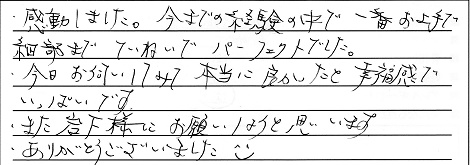 ・感動しました。今までの経験の中で一番お上手で
細部まで ていねいで パーフェクトでした。
・今日お伺いしてみて 本当に良かったと 幸福感で
いっぱいです。
・また岩下様に お願いしようと思います
・ありがとうございました